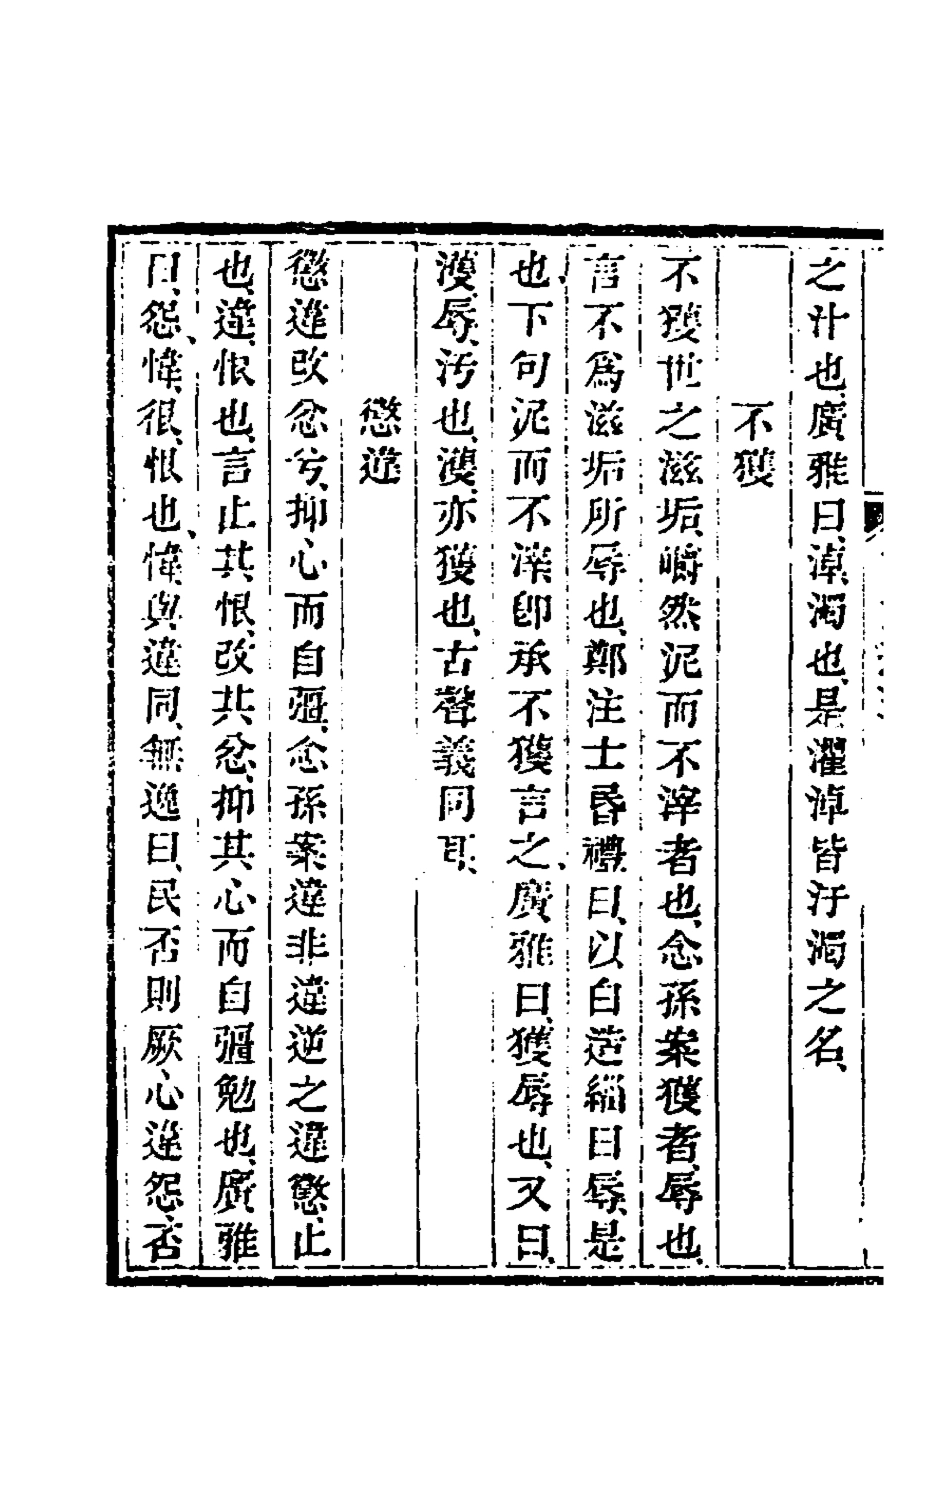 之汁也、廣雅曰、淖、濁也、是濯淖皆汙濁之名、
不獲
不獲世之滋垢、皭然泥而不滓者也、念孫案、獲者、辱也、
言不爲滋垢所辱也、鄭注士昏禮曰、以白造緇曰辱、是
也、下句泥而不滓、卽承不獲言之、廣雅曰、獲、辱也、又曰、
濩、辱、汚也、濩亦獲也、古聲義同耳、
懲違
懲違改忿兮、抑心而自彊、念孫案、違、非違逆之違、懲、止
也、違、恨也、言止其恨、改其忿、抑其心而自彊勉也、廣雅
曰、怨、愇、很、恨也、愇與違同、無逸曰、民否則厥心違怨、否